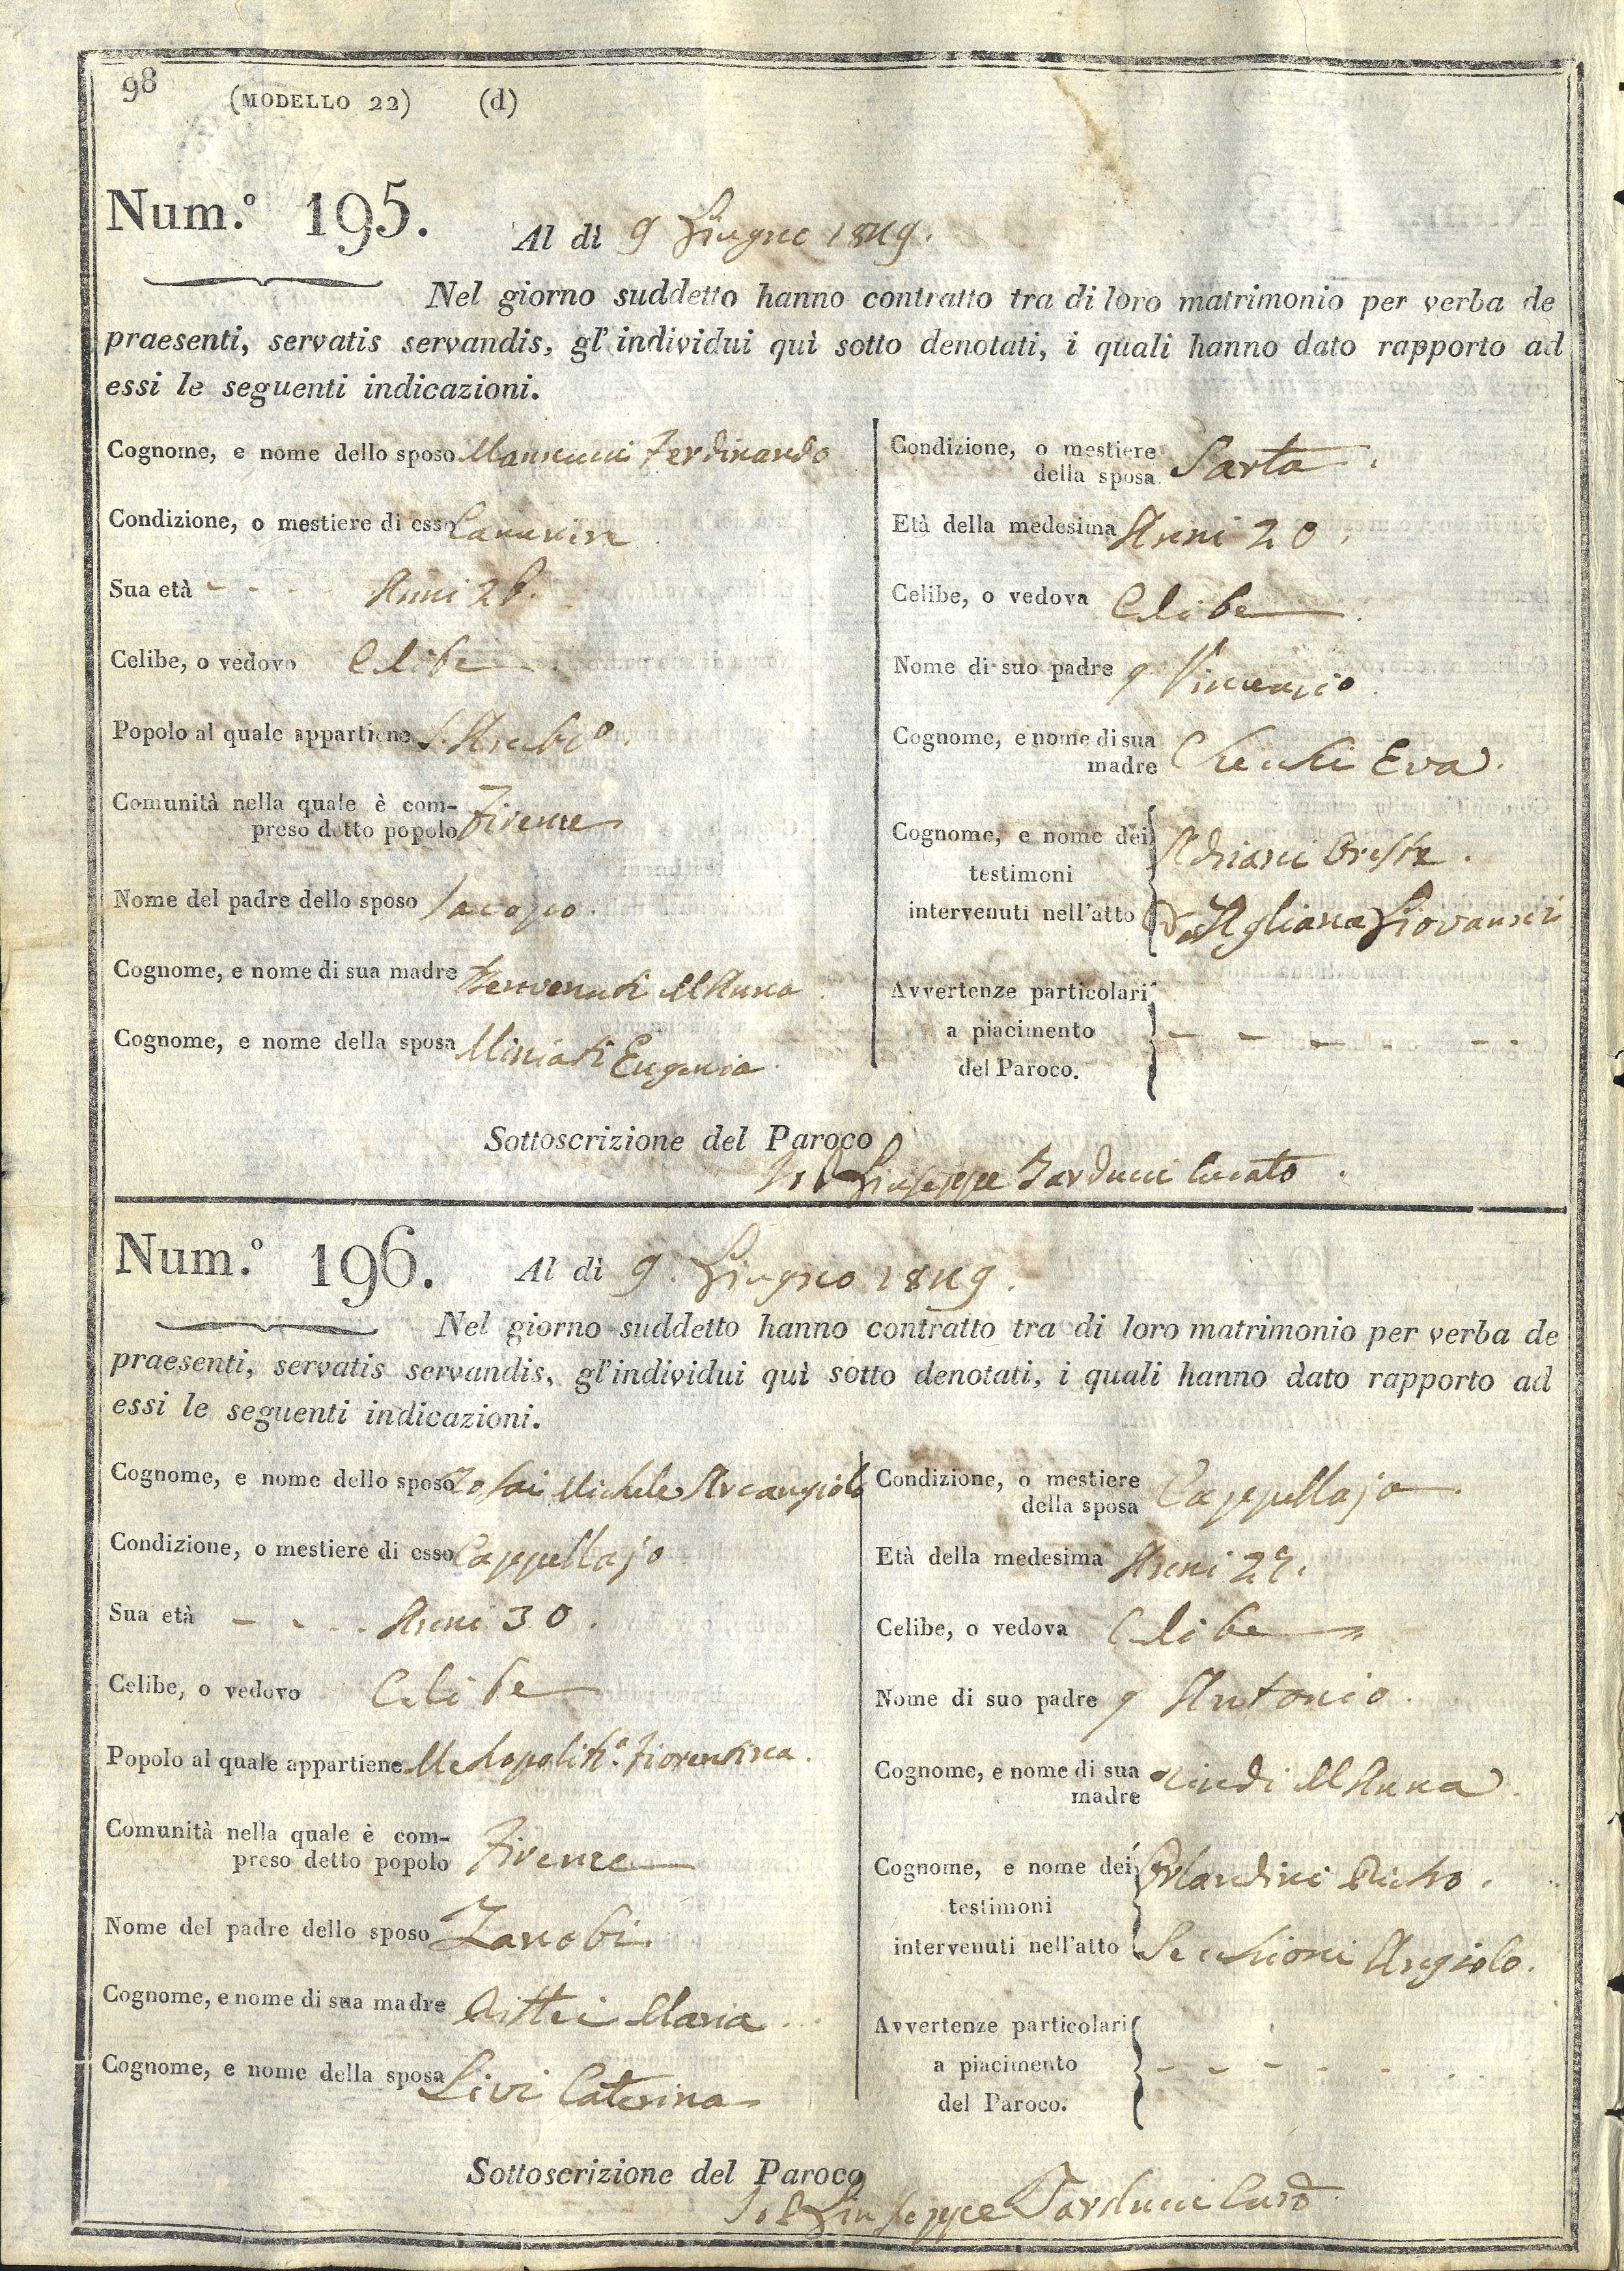 98
(MODELLO 22) (d)
Num.º 195.
Al dì 9 Giugno 1849.
Nel giorno suddetto hanno contratto tra di loro matrimonio per verba de
praesenti, servatis servandis, gl'individui quì sotto denotati, i quali hanno dato rapporto ad
essi le seguenti indicazioni.
Cognome, e nome dello sposo Mannucci Ferdinando
Condizione, o mestiere di esso
Sua età - - - - Anni
Celibe, o vedovo Celibe
Popolo al quale appartiene
Comunità nella quale è com-
preso detto popolo Firenze
Nome del padre dello sposo Jacopo
Cognome, e nome di sua madre Benvenuti M Anna
Cognome, e nome della sposa Miniati Eugenia
Condizione, o mestiere
della sposa Sarta.
Età della medesima Anni 20.
Celibe, o vedova Celibe.
Nome di suo padre q Vincenzio
Cognome, e nome di sua
madre Eva.
Cognome, e nome dei
testimoni
intervenuti nell'atto
Adriani Oreste.
Da Agliana Giovanni
Avvertenze particolari
a piacimento
del Paroco.
- - - - - -
Sottoscrizione del Paroco
Giuseppe Tarducci Curato.
Num.º 196.
Al dì 9. Giugno 1849.
Nel giorno suddetto hanno contratto tra di loro matrimonio per verba de
praesenti, servatis servandis, gl'individui quì sotto denotati, i quali hanno dato rapporto ad
essi le seguenti indicazioni.
Cognome, e nome dello sposo Michele Arcangiolo
Condizione, o mestiere di esso Cappellajo
Sua età - - - - Anni 30.
Celibe, o vedovo Celibe
Popolo al quale appartiene Metropolitª. Fiorentina.
Comunità nella quale è com-
preso detto popolo Firenze
Nome del padre dello sposo Zanobi.
Cognome, e nome di sua madre Maria
Cognome, e nome della sposa Livi Caterina
Condizione, o mestiere
della sposa Cappellaja.
Età della medesima Anni
Celibe, o vedova Celibe
Nome di suo padre q Antonio.
Cognome, e nome di sua
madre M Anna.
Cognome, e nome dei
testimoni
intervenuti nell'atto
Orlandini Pietro.
Secchioni Angiolo.
Avvertenze particolari
a piacimento
del Paroco.
- - - - - -
Sottoscrizione del Paroco
Giuseppe Tarducci Curº